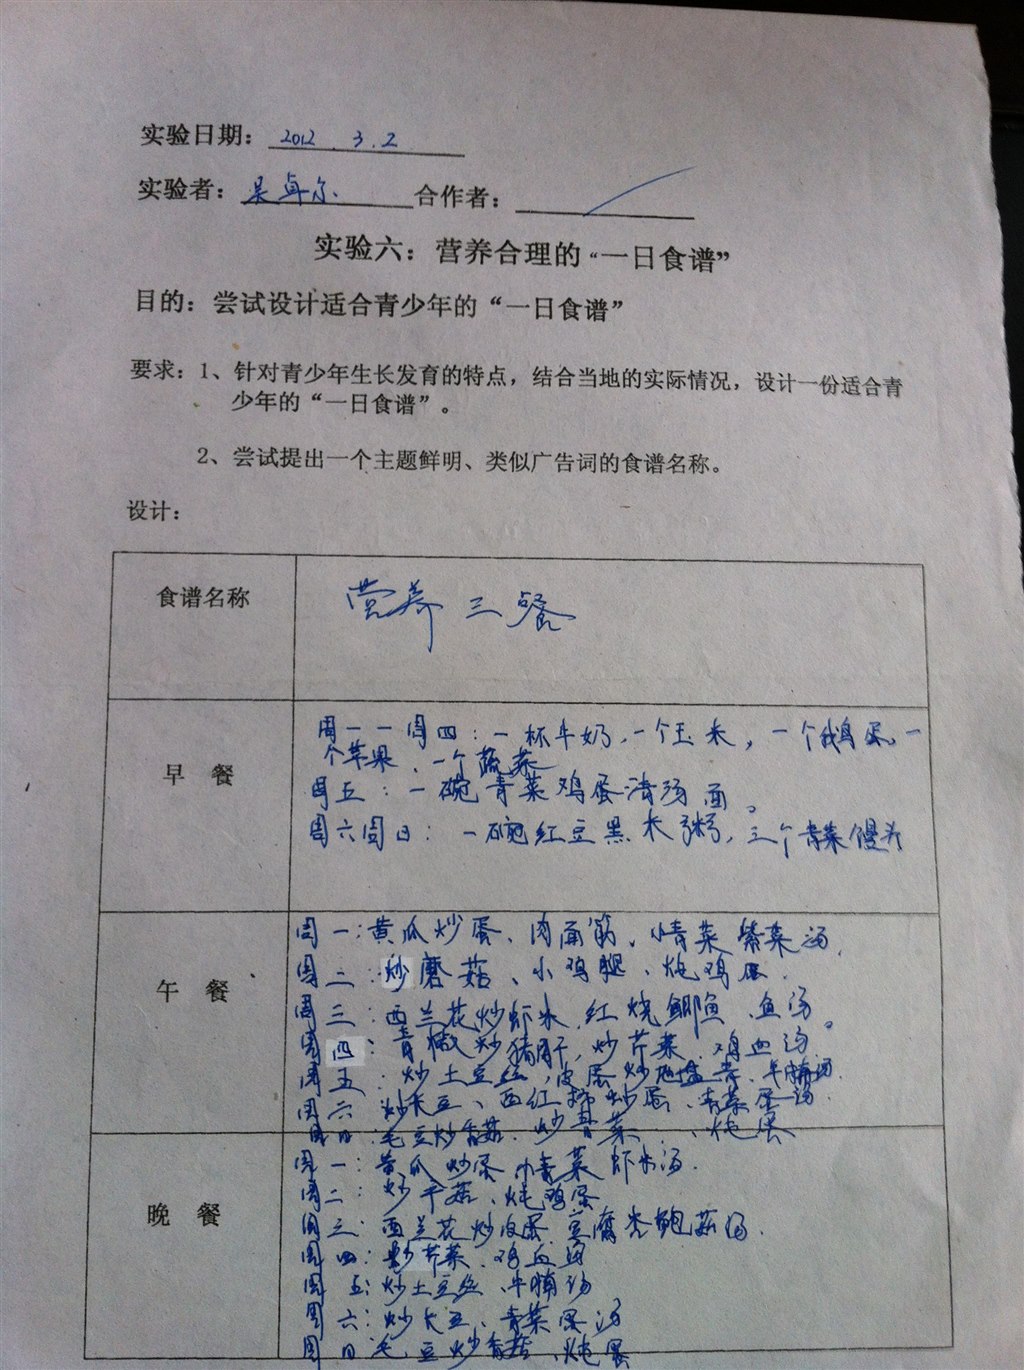 实验日期：2012.3.2
实验者：吴卓尔 合作者：
实验六：营养合理的“一日食谱”
目的：尝试设计适合青少年的“一日食谱”
要求：1、针对青少年生长发育的特点，结合当地的实际情况，设计一份适合青
少年的“一日食谱”。
2、尝试提出一个主题鲜明、类似广告词的食谱名称。
设计：
食谱名称 营养三餐
早 餐
周一一周四：一杯牛奶，一个玉米，一个鸡蛋、一
个苹果、一个蔬菜
周五：一碗青菜鸡蛋清汤面。
周六周日：一碗红豆黑米粥，三个青菜馒头
午 餐
周一：黄瓜炒蛋、肉面筋、小青菜 紫菜汤.
周二：炒蘑菇、小鸡腿、炖鸡蛋.
周三：西兰花炒虾米，红烧鲫鱼 鱼汤。
周四：青椒炒猪肝，炒芹菜，鸡血汤
周五：炒土豆丝，皮蛋炒 牛腩汤.
周六：炒长豆、西红柿炒蛋、青菜蛋汤.
周日：毛豆炒香菇. 炒青菜、炖蛋
晚 餐
周一：黄瓜炒蛋 小青菜 虾米汤.
周二：炒平菇、炖鸡蛋
周三：西兰花炒皮蛋 豆腐 鲍菇汤.
周四：炒芹菜、鸡血汤
周五：炒土豆丝 牛腩汤
周六：炒长豆、青菜蛋汤
周日：毛豆炒香菇 炖蛋